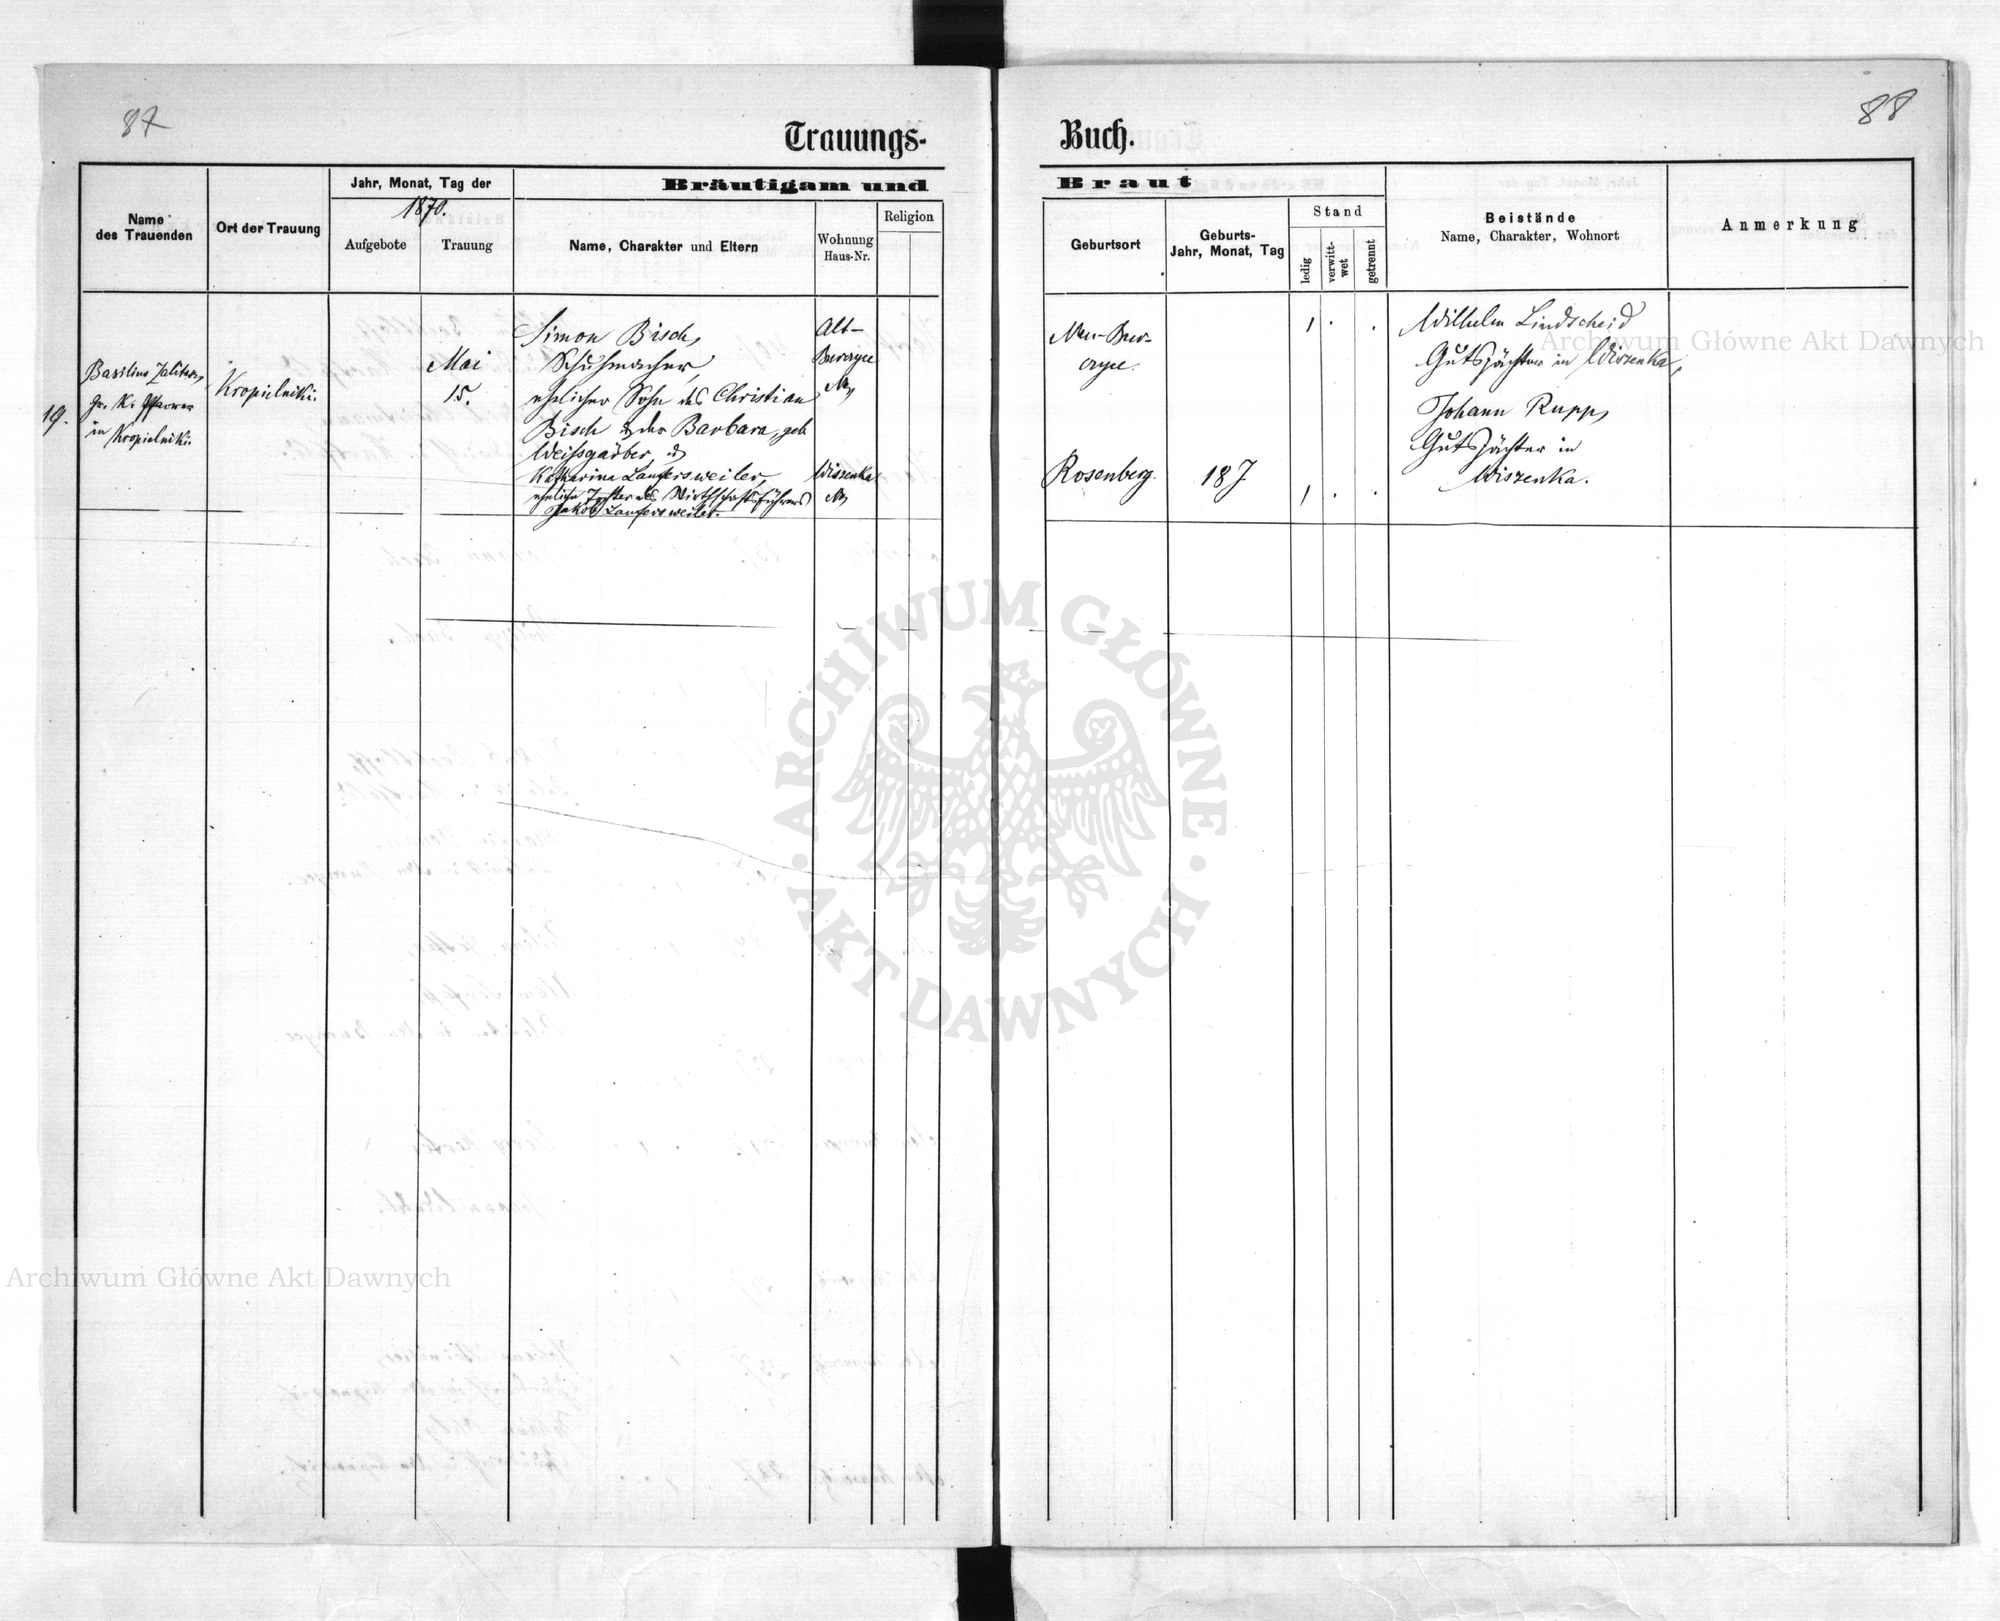 87
88
Trauungs- Buch.
Name des Trauenden
Ort der Trauung
Jahr, Monat, Tag der
1870.
Aufgebote
Trauung
Bräutigam und Braut
Name, Charakter und Eltern
Wohnung
Haus-Nr.
Religion
Geburtsort
Geburts-
Jahr, Monat, Tag
Stand
ledig
verwitt-
wet
getrennt
Beistände
Name, Charakter, Wohnort
Anmerkung
19.
Basilius
gr. K. Pfarrer
in Kropielniki.
Kropielniki.
Mai
15.
Simon Bisch,
Schuhmacher,
ehelicher Sohn des Christian
Bisch & der Barbara, geb.
Weissgärber, &
Katharina Laufersweiler,
eheliche Tochter des Wirthschaftsführers
Jakob Laufersweiler.
Alt-
Burczyce
Wiszenka
Neu-Bur-
czyce.
Rosenberg.
18J
1 . .
1 . .
Wilhelm Lindscheid
Gutspächter in Wiszenka,
Johann Rupp,
Gutspächter in
Wiszenka.
Archiwum Główne Akt Dawnych
ARCHIWUM GŁÓWNE · AKT DAWNYCH ·
Archiwum Główne Akt Dawnych